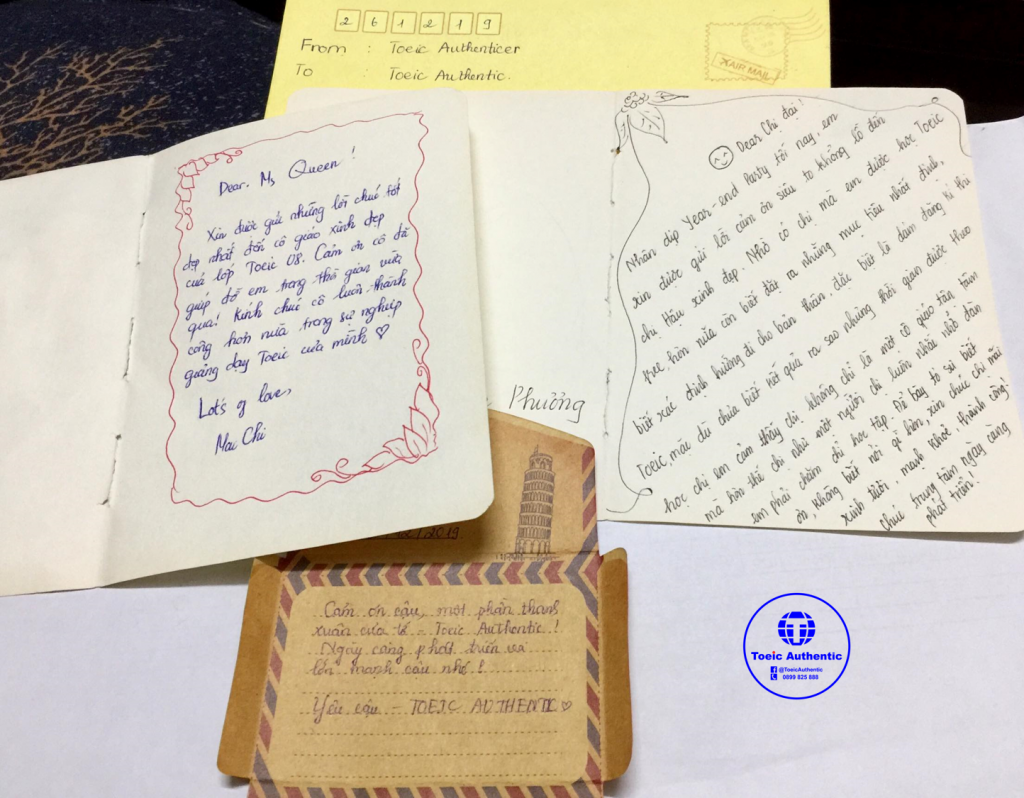 261219
From : Toeic Authenticer
To : Toeic Authentic.
AIR MAIL
Dear. Ms Queen !
Xin được gửi những lời chúc tốt
đẹp nhất đến cô giáo xinh đẹp
của lớp Toeic U8. Cảm ơn cô đã
giúp đỡ em trong thời gian vừa
qua! Kính chúc cô luôn thành
công hơn nữa trong sự nghiệp
giảng dạy Toeic của mình ♡
Lots of love,
Mai Chi
Dear Chị đại!
Nhân dịp Year-end Party tối nay, em
xin được gửi lời cảm ơn siêu to khổng lồ đến
chị Hậu xinh đẹp. Nhờ có chị mà em được học Toeic
free, hơn nữa còn biết đặt ra những mục tiêu nhất định,
biết xác định hướng đi cho bản thân, đặc biệt là dám đăng kí thi
Toeic, mặc dù chưa biết kết quả ra sao nhưng thời gian được theo
học chị em cảm thấy chị không chỉ là một cô giáo tận tâm
mà hơn thế chị như một người chị luôn nhắc nhở đàn
em phải chăm chỉ học tập. Để bày tỏ sự biết
ơn, không biết nói gì hơn, xin chúc chị mãi
xinh tươi, mạnh khoẻ, thành công!
chúc trung tâm ngày càng
phát triển!
Phương
2019
Cảm ơn cậu, một phần thanh
xuân của tớ - Toeic Authentic !
Ngày càng phát triển và
lớn mạnh cậu nhé !
Yêu cậu - TOEIC AUTHENTIC ♡
Toeic Authentic
@ToeicAuthentic
0899 825 888